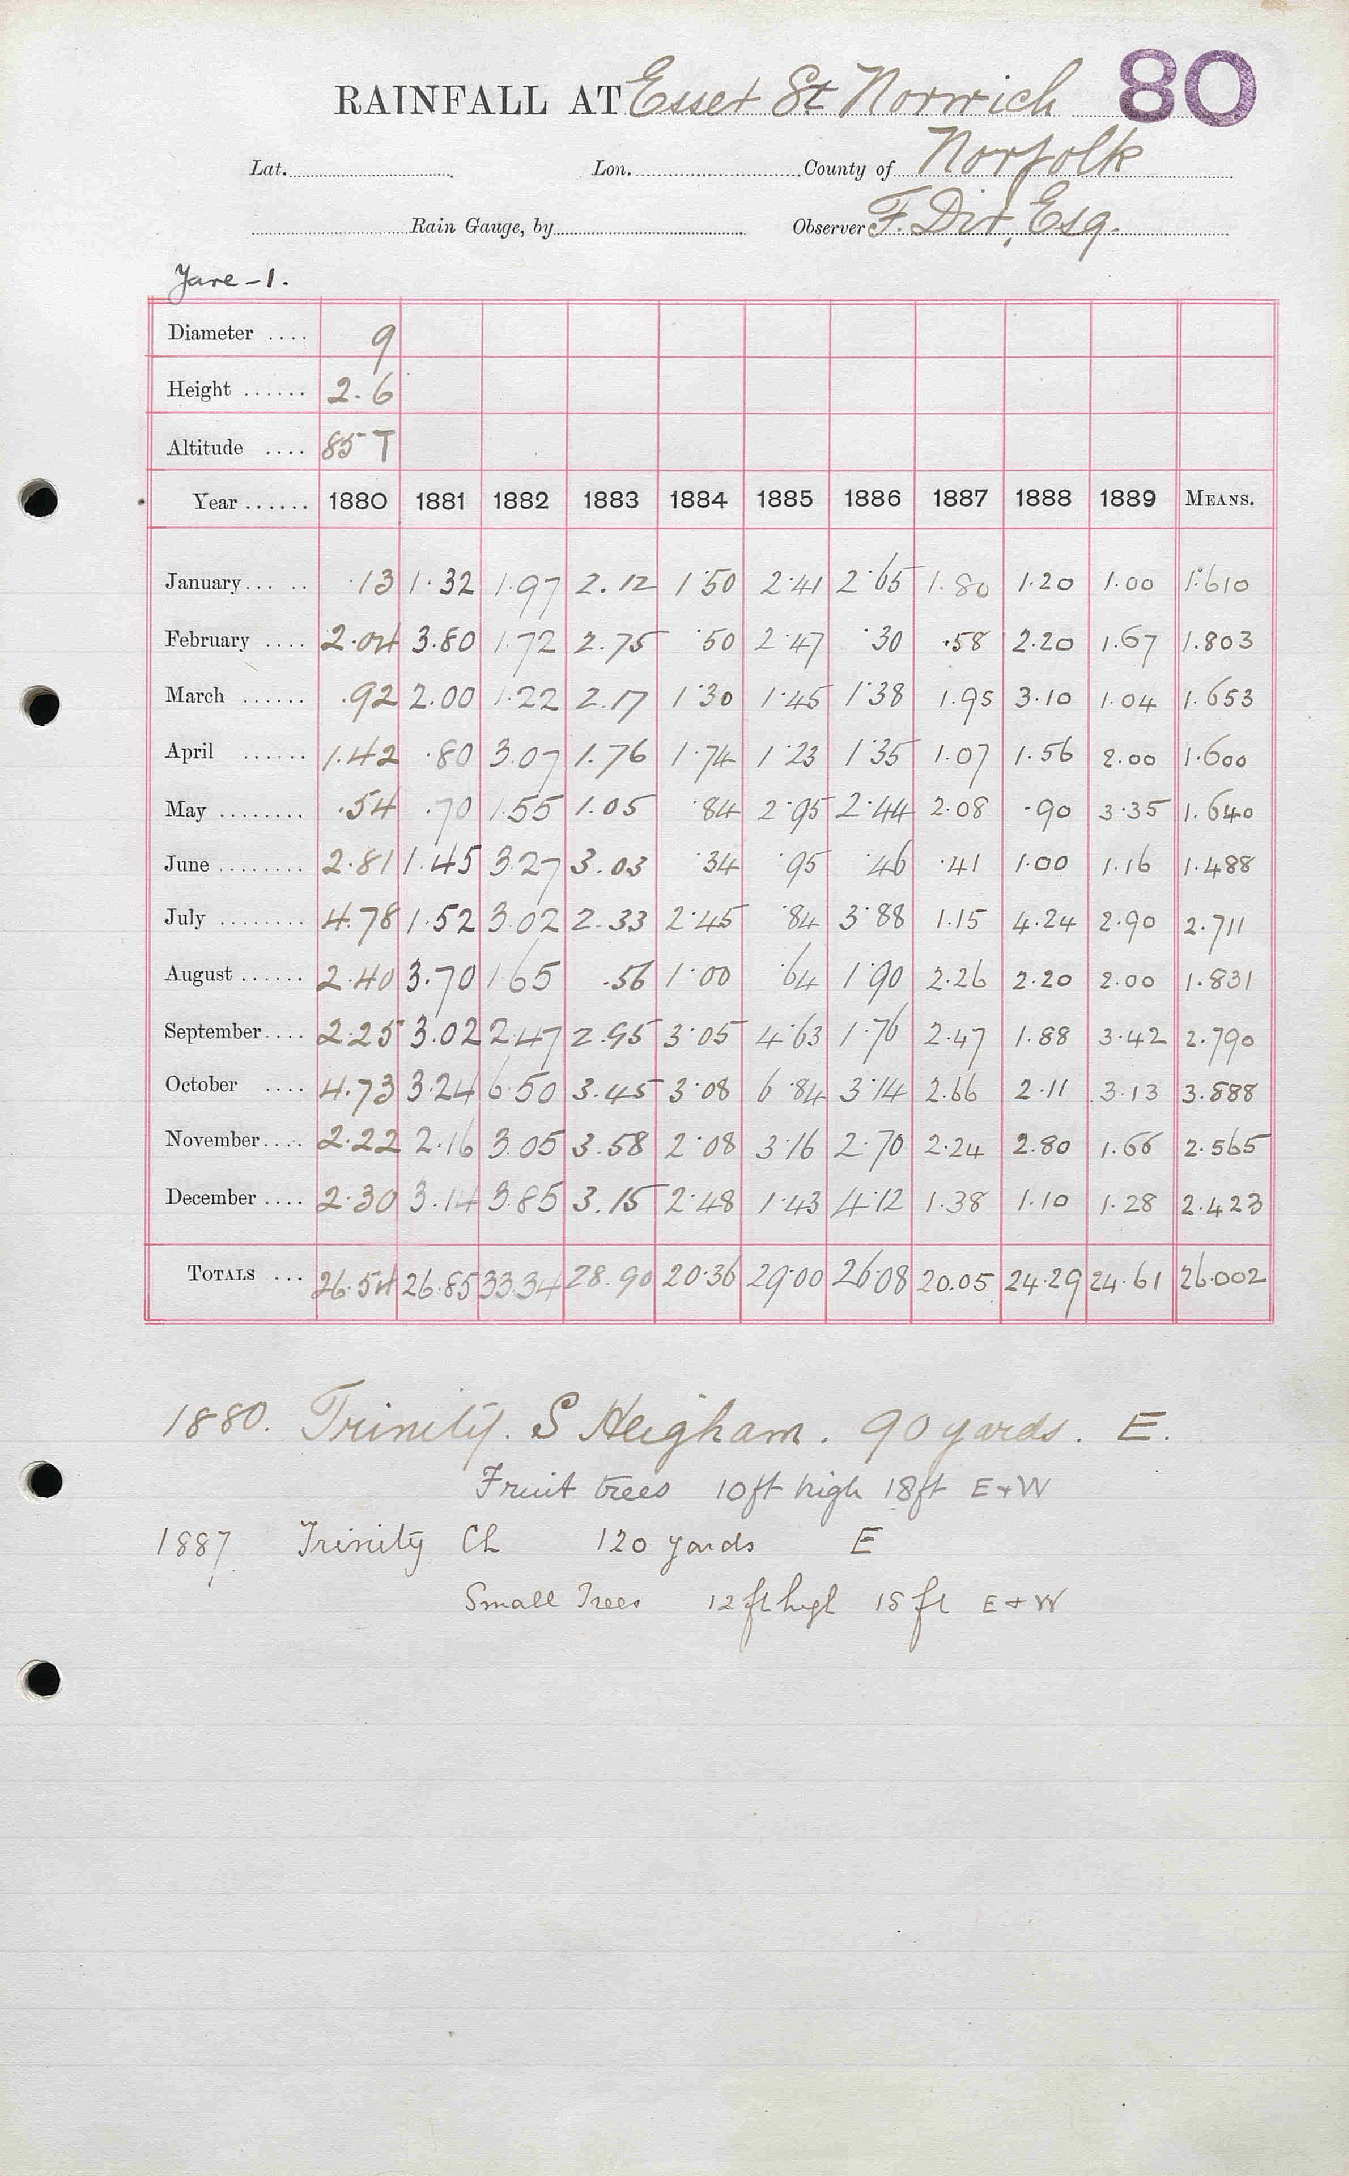 RAINFALL AT Essex St Norwich 80
Lat. Lon. County of Norfolk
Rain Gauge, by Observer F. Dix, Esq.
Yare - 1.
Diameter .... 9
Height ...... 2.6
Altitude .... 85 T
Year ...... 1880 1881 1882 1883 1884 1885 1886 1887 1888 1889 MEANS.
January ...... .13 1.32 1.97 2.12 1.50 2.41 2.65 1.80 1.20 1.00 1.610
February .... 2.04 3.80 1.72 2.75 .50 2.47 .30 .58 2.20 1.67 1.803
March ...... .92 2.00 1.22 2.17 1.30 1.45 1.38 1.95 3.10 1.04 1.653
April ...... 1.42 .80 3.07 1.76 1.74 1.23 1.35 1.07 1.56 2.00 1.600
May ........ .54 .70 1.55 1.05 .84 2.95 2.44 2.08 .90 3.35 1.640
June ........ 2.81 1.45 3.27 3.03 .34 .95 .46 .41 1.00 1.16 1.488
July ........ 4.78 1.52 3.02 2.33 2.45 .84 3.88 1.15 4.24 2.90 2.711
August ...... 2.40 3.70 1.65 .56 1.00 .64 1.90 2.26 2.20 2.00 1.831
September .... 2.25 3.02 2.47 2.95 3.05 4.63 1.76 2.47 1.88 3.42 2.790
October .... 4.73 3.24 6.50 3.45 3.08 6.84 3.14 2.66 2.11 3.13 3.888
November .... 2.22 2.16 3.05 3.58 2.08 3.16 2.70 2.24 2.80 1.66 2.565
December .... 2.30 3.14 3.85 3.15 2.48 1.43 4.12 1.38 1.10 1.28 2.423
TOTALS ... 26.54 26.85 33.34 28.90 20.36 29.00 26.08 20.05 24.29 24.61 26.002
1880. Trinity. S Heigham. 90 yards. E.
Fruit trees 10ft high 18ft E + W
1887. Trinity Ch 120 yards E
Small Trees 12 ft high 15 ft E + W